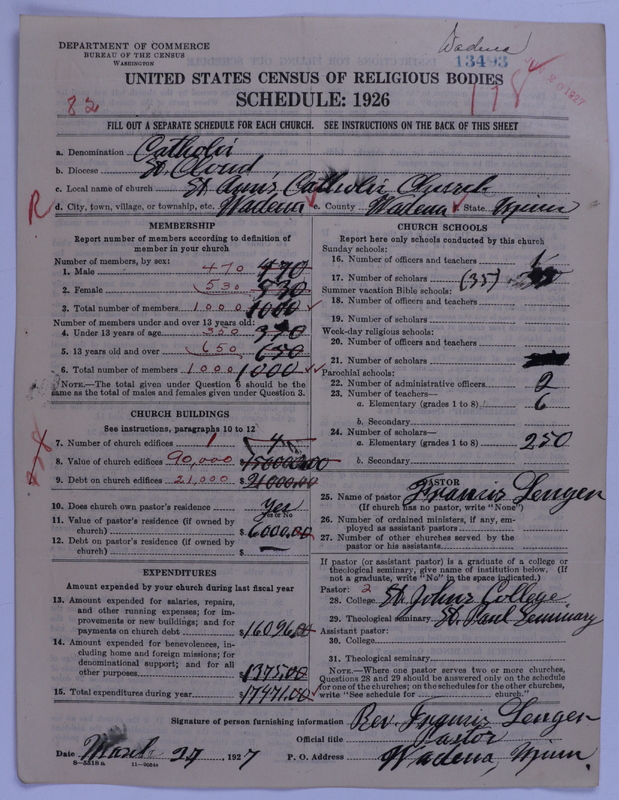 Wadena
DEPARTMENT OF COMMERCE
BUREAU OF THE CENSUS
WASHINGTON
13493
178
UNITED STATES CENSUS OF RELIGIOUS BODIES
SCHEDULE: 1926
82
FILL OUT A SEPARATE SCHEDULE FOR EACH CHURCH. SEE INSTRUCTIONS ON THE BACK OF THIS SHEET
a. Denomination Catholic
b. Diocese St. Cloud
c. Local name of church St Ann's Catholic Church
R
d. City, town, village, or township, etc. Wadena e. County Wadena State Minn
MEMBERSHIP
Report number of members according to definition of
member in your church
Number of members, by sex:
1. Male 470 470
2. Female 530 530
3. Total number of members 1000 1000
Number of members under and over 13 years old:
4. Under 13 years of age 350
5. 13 years old and over 650 650
6. Total number of members 1000 1000
NOTE.—The total given under Question 6 should be the
same as the total of males and females given under Question 3.
CHURCH BUILDINGS
See instructions, paragraphs 10 to 12
7. Number of church edifices 1 4
8. Value of church edifices 90,000 $150000.00
9. Debt on church edifices 21,000 $21000.00
10. Does church own pastor's residence Yes
Yes or No
11. Value of pastor's residence (if owned by
church) $6000.00
12. Debt on pastor's residence (if owned by
church) $ —
EXPENDITURES
Amount expended by your church during last fiscal year
13. Amount expended for salaries, repairs,
and other running expenses; for im-
provements or new buildings; and for
payments on church debt $16096.00
14. Amount expended for benevolences, in-
cluding home and foreign missions; for
denominational support; and for all
other purposes 1375.00
15. Total expenditures during year $17471.00
CHURCH SCHOOLS
Report here only schools conducted by this church
Sunday schools:
16. Number of officers and teachers 1
17. Number of scholars (35)
Summer vacation Bible schools:
18. Number of officers and teachers
19. Number of scholars
Week-day religious schools:
20. Number of officers and teachers
21. Number of scholars
Parochial schools:
22. Number of administrative officers 2
23. Number of teachers—
a. Elementary (grades 1 to 8) 6
b. Secondary
24. Number of scholars—
a. Elementary (grades 1 to 8) 250
b. Secondary
PASTOR
25. Name of pastor Francis Lenger
(If church has no pastor, write "None")
26. Number of ordained ministers, if any, em-
ployed as assistant pastors
27. Number of other churches served by the
pastor or his assistants
If pastor (or assistant pastor) is a graduate of a college or
theological seminary, give name of institution below. (If
not a graduate, write "No" in the space indicated.)
Pastor: 2
28. College St. Johns College
29. Theological seminary St. Paul Seminary
Assistant pastor:
30. College
31. Theological seminary
NOTE.—Where one pastor serves two or more churches,
Questions 28 and 29 should be answered only on the schedule
for one of the churches; on the schedules for the other churches,
write "See schedule for church."
Signature of person furnishing information Rev. Francis Lenger
Official title Pastor
Date March 27, 1927 P. O. Address Wadena, Minn.
8—5518a 11—9034a